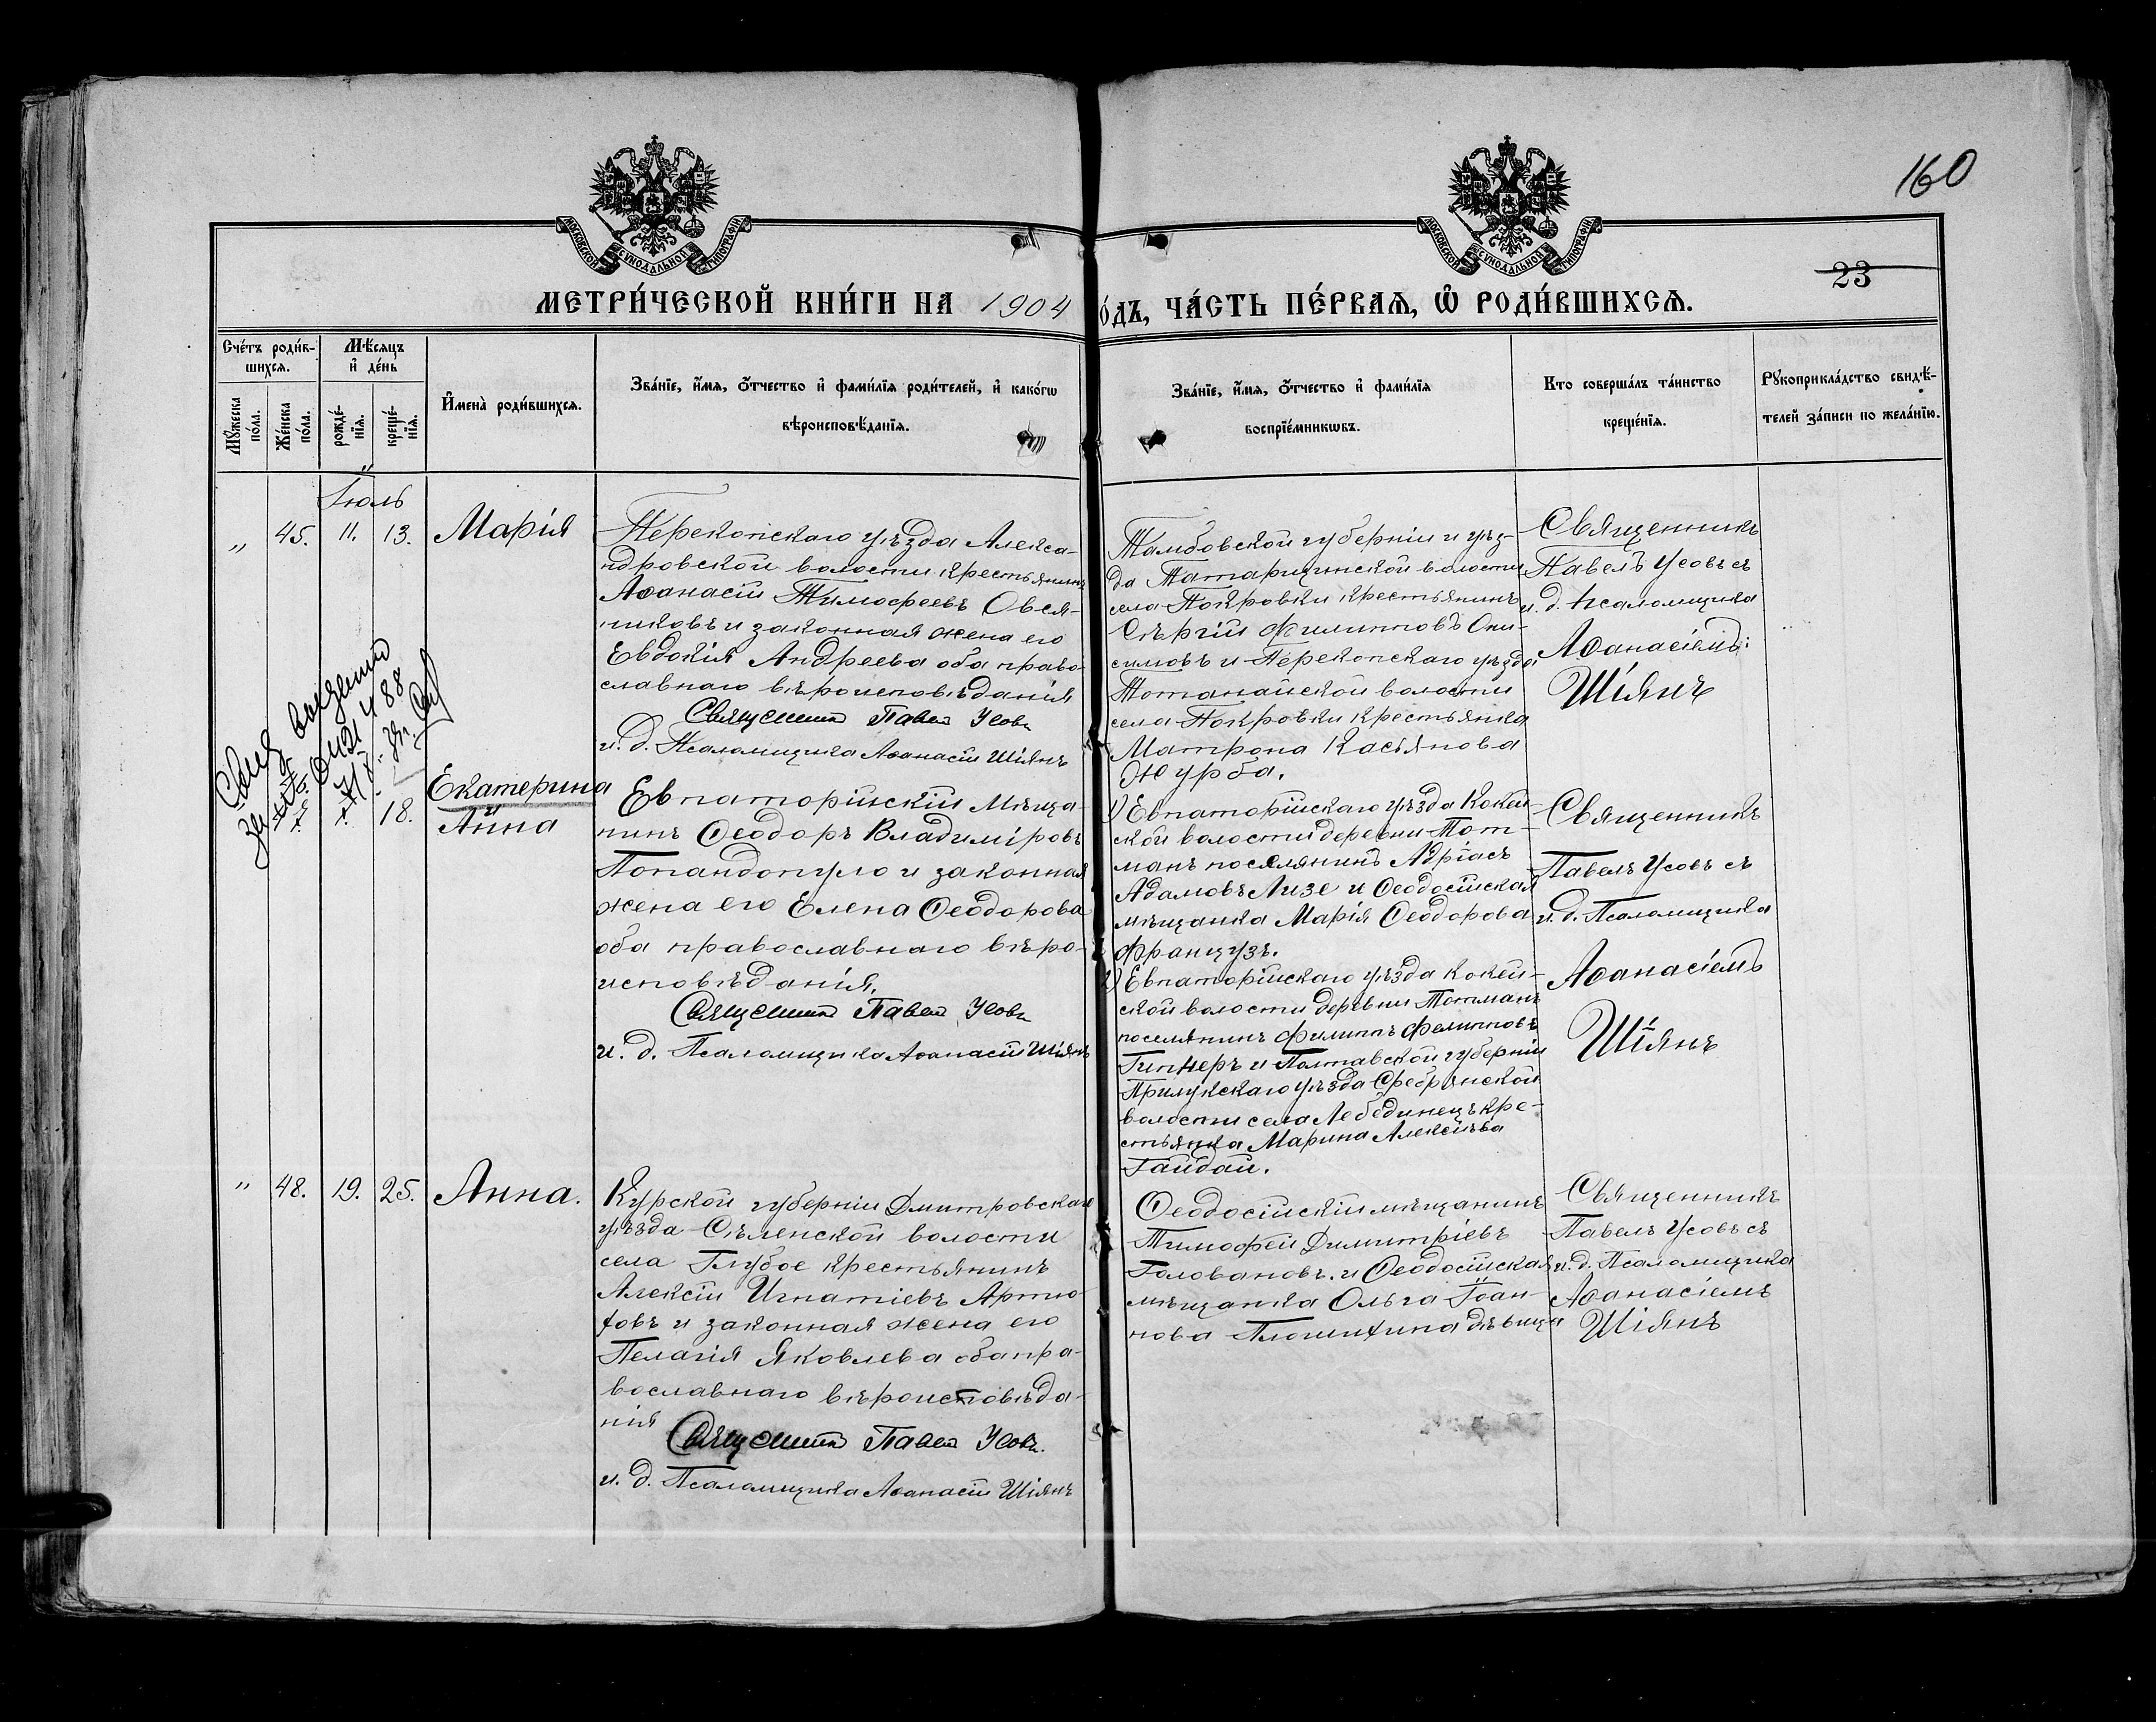 160
МОСКОВСКОЙ СѴНОДАЛЬНОЙ ТИПОГРАФІИ
МОСКОВСКОЙ СѴНОДАЛЬНОЙ ТИПОГРАФІИ
23
МЕТРИ́ЧЕСКОЙ КНИ́ГИ НА 1904 О́ДЪ, ЧА́СТЬ ПЕ́РВАѦ, Ѡ҆ РОДИ́ВШИХСѦ.
Сче́тъ роди́в-
шихсѧ.
Мѣ́сяцъ
и҆ де́нь
Мꙋ́жеска по́ла.
Же́нска по́ла.
рожде́-
нїѧ.
креще́-
нїѧ.
И҆мена̀ роди́вшихсѧ.
Зва́нїе, и҆́мѧ, ѻ҆́тчество и҆ фами́лїѧ роди́телей, и҆ како́гѡ
вѣроисповѣ́данїѧ.
Зва́нїе, и҆́мѧ, ѻ҆́тчество и҆ фами́лїѧ
воспрїе́мникѡвъ.
Кто соверша́лъ та́инство
креще́нїѧ.
Рꙋкоприкла́дство свидѣ́-
телей за́писи по жела́нїю.
Іюль
„ 45. 11. 13. Марія
Перекопскаго уѣзда Алекса-
ндровской волости крестьянинъ
Аѳанасій Тимофеевъ Овся-
никовъ и законная жена его
Евдокія Андреева оба право-
славнаго вѣроисповѣданія
Священникъ Павелъ Усовъ
и. д. Псаломщика Аѳанасій Шіянъ
Тамбовской губерніи и уѣз-
да Татарщинской волости
села Покровки крестьянинъ
Сергій Филипповъ Они-
симовъ и Перекопскаго уѣзда
Тотанайской волости
села Покровки крестьянка
Матрона Касьянова
Журба.
Священникъ
Павелъ Усовъ съ
и. д. псаломщика
Аѳанасіемъ
Шіянъ
18.
Екатерина
Анна
Евпаторійскій мѣща-
нинъ Ѳеодоръ Владиміровъ
Попандопуло и законная
жена его Елена Ѳеодорова
оба православнаго вѣро-
исповѣданія.
Священникъ Павелъ Усовъ
и. д. Псаломщика Аѳанасій Шіянъ
1) Евпаторійскаго уѣзда Кокей-
ской волости деревни Тот-
манъ поселянинъ Адріасъ
Адамовъ Лизе и Ѳеодосійская
мѣщанка Марія Ѳеодорова
Французъ.
2) Евпаторійскаго уѣзда Кокей-
ской волости деревни Тотманъ
поселянинъ Филиппъ Филипповъ
Гипнеръ и Полтавской губерніи
Прилукскаго уѣзда Сребрянской
волости села Лебединецъ кре-
стьянка Марина Алексѣева
Гайдай.
Священникъ
Павелъ Усовъ съ
и. д. Псаломщика
Аѳанасіемъ
Шіянъ
„ 48. 19. 25. Анна.
Курской губерніи Дмитровскаго
уѣзда Сѣленской волости
села Глубое крестьянинъ
Алексій Игнатіевъ Артю-
ховъ и законная жена его
Пелагія Яковлева оба пра-
вославнаго вѣроисповѣда-
нія
Священникъ Павелъ Усовъ.
и. д. Псаломщика Аѳанасій Шіянъ
Ѳеодосійскій мѣщанинъ
Тимофей Димитріевъ
Головановъ и Ѳеодосійская
мѣщанка Ольга Іоан-
нова дѣвица
Священникъ
Павелъ Усовъ съ
и. д. Псаломщика
Аѳанасіемъ
Шіянъ